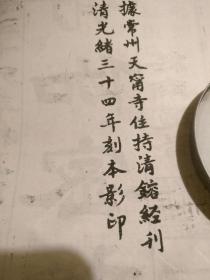 據常州天甯寺住持清鎔經刊
清光緒三十四年刻本影印